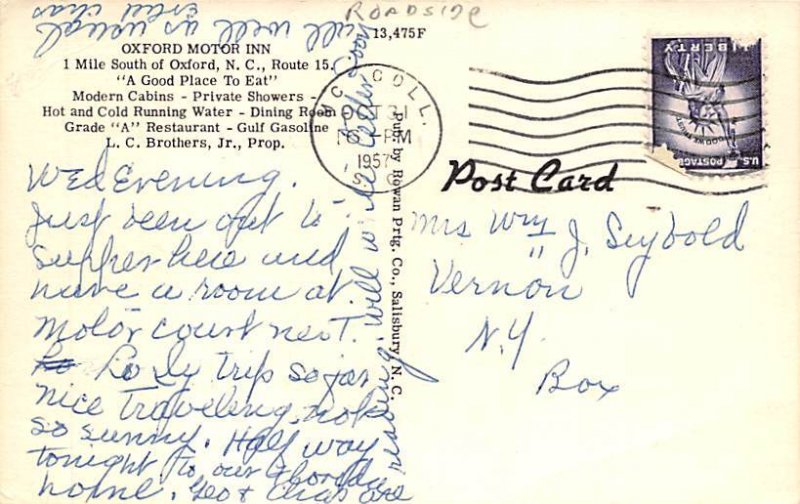 ROADSIDE
13,475F
OXFORD MOTOR INN
1 Mile South of Oxford, N. C., Route 15.
"A Good Place To Eat"
Modern Cabins - Private Showers -
Hot and Cold Running Water - Dining Room
Grade "A" Restaurant - Gulf Gasoline
L. C. Brothers, Jr., Prop.
COLL.
OCT 31
PM
1957
LIBERTY
U.S. POSTAGE
Post Card
Pub. by Rowan Prtg. Co., Salisbury, N. C.
Wed Evening.
Just been out to
supper here and
have a room at
Motor court next.
Lovely trip so far
nice traveling, not
so sunny. Half way
tonight to our Florida
home. Geo & Chas are
resting, will write letter soon
all well as usual
Mrs Wm J. Seybold
"
Vernon
N.Y.
Box